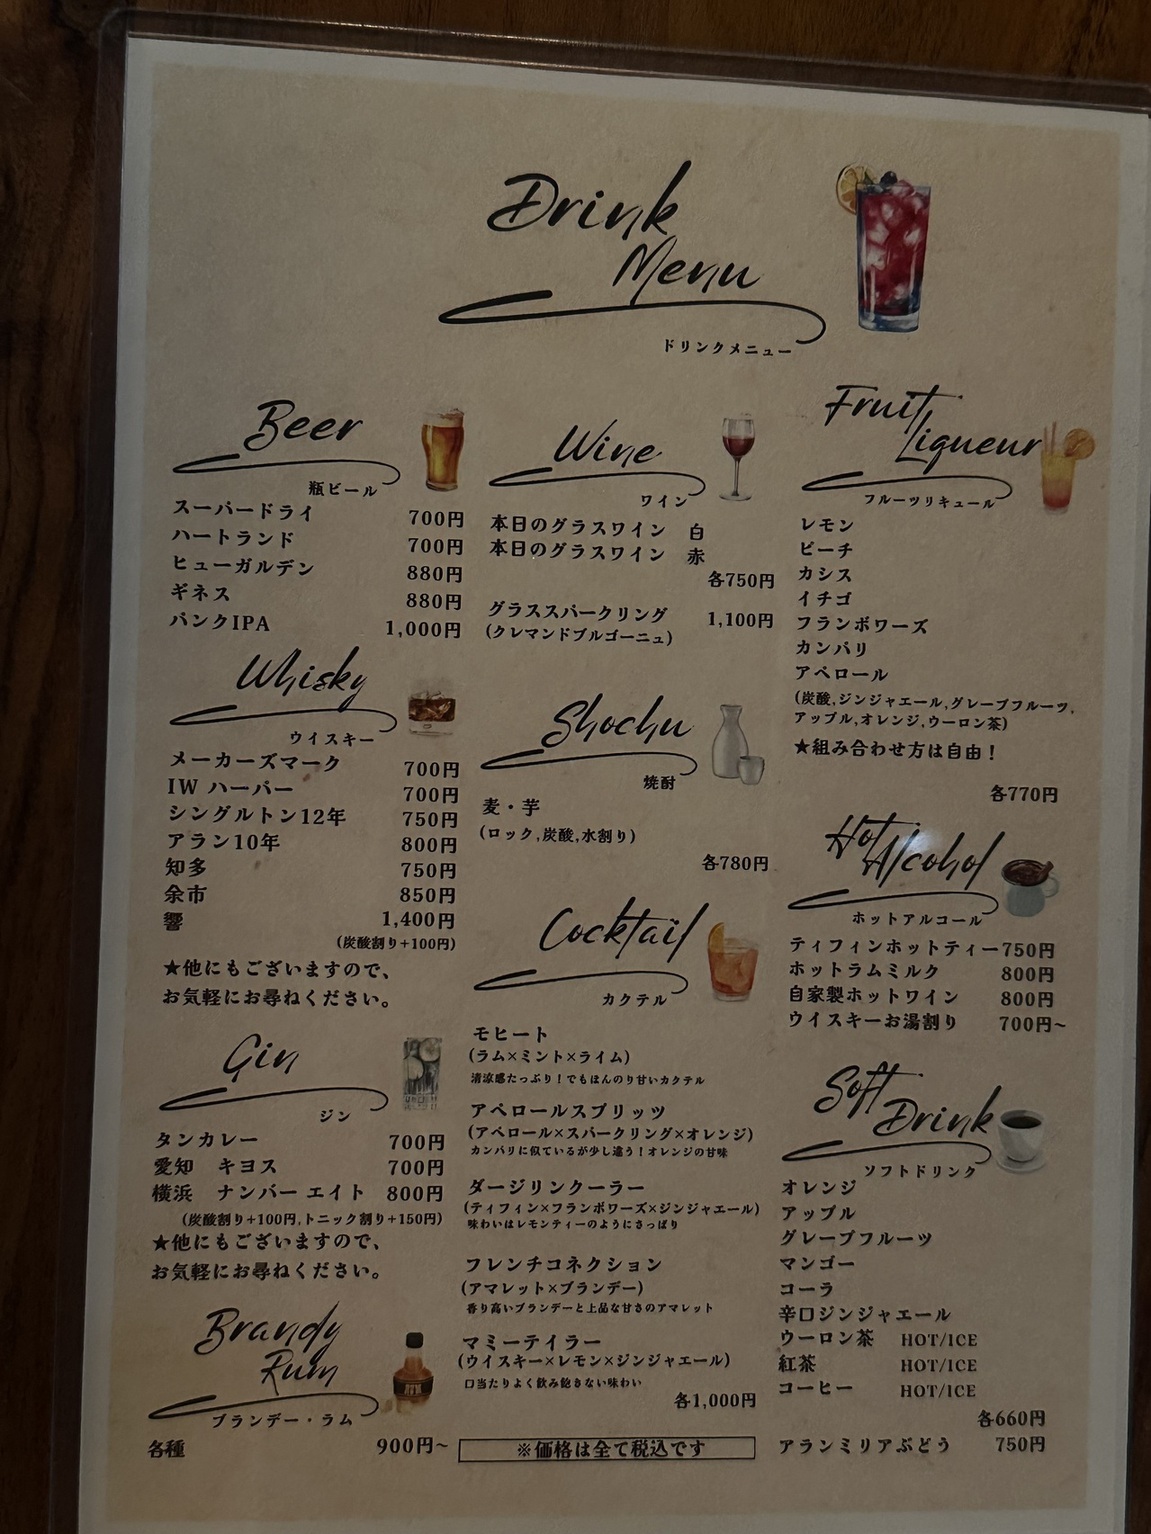 Drink
Menu
ドリンクメニュー
Beer
瓶ビール
スーパードライ 700円
ハートランド 700円
ヒューガルデン 880円
ギネス 880円
パンクIPA 1,000円
Whisky
ウイスキー
メーカーズマーク 700円
IW ハーパー 700円
シングルトン12年 750円
アラン10年 800円
知多 750円
余市 850円
響 1,400円
(炭酸割り+100円)
★他にもございますので、
お気軽にお尋ねください。
Gin
ジン
タンカレー 700円
愛知 キヨス 700円
横浜 ナンバー エイト 800円
(炭酸割り+100円,トニック割り+150円)
★他にもございますので、
お気軽にお尋ねください。
Brandy
Rum
ブランデー・ラム
各種 900円~
Wine
ワイン
本日のグラスワイン 白
本日のグラスワイン 赤
各750円
グラススパークリング 1,100円
(クレマンドブルゴーニュ)
Shochu
焼酎
麦・芋
(ロック,炭酸,水割り)
各780円
Cocktail
カクテル
モヒート
(ラム×ミント×ライム)
清涼感たっぷり！でもほんのり甘いカクテル
アペロールスプリッツ
(アペロール×スパークリング×オレンジ)
カンパリに似ているが少し違う！オレンジの甘味
ダージリンクーラー
(ティフィン×フランボワーズ×ジンジャエール)
味わいはレモンティーのようにさっぱり
フレンチコネクション
(アマレット×ブランデー)
香り高いブランデーと上品な甘さのアマレット
マミーテイラー
(ウイスキー×レモン×ジンジャエール)
口当たりよく飲み飽きない味わい
各1,000円
※価格は全て税込です
Fruit
Liqueur
フルーツリキュール
レモン
ピーチ
カシス
イチゴ
フランボワーズ
カンパリ
アペロール
(炭酸,ジンジャエール,グレープフルーツ,
アップル,オレンジ,ウーロン茶)
★組み合わせ方は自由！
各770円
Hot
Alcohol
ホットアルコール
ティフィンホットティー750円
ホットラムミルク 800円
自家製ホットワイン 800円
ウイスキーお湯割り 700円~
Soft
Drink
ソフトドリンク
オレンジ
アップル
グレープフルーツ
マンゴー
コーラ
辛口ジンジャエール
ウーロン茶 HOT/ICE
紅茶 HOT/ICE
コーヒー HOT/ICE
各660円
アランミリアぶどう 750円